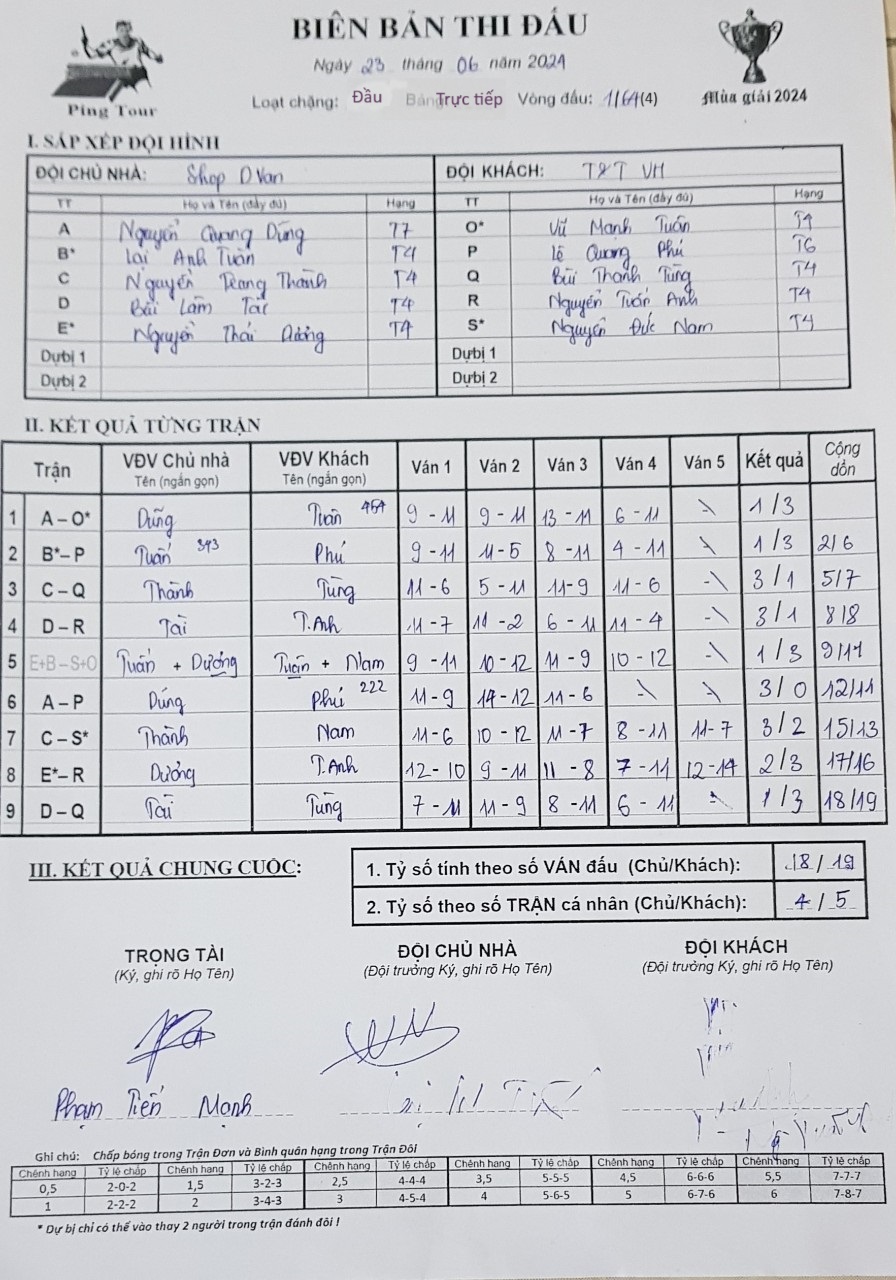 BIÊN BẢN THI ĐẤU
Ngày 23 tháng 06 năm 2024
Ping Tour
Loạt chặng: Đầu Bảng Trực tiếp Vòng đấu: 1/64(4)
Mùa giải 2024
I. SẮP XẾP ĐỘI HÌNH
ĐỘI CHỦ NHÀ: Shop D Van ĐỘI KHÁCH: T&T VH
TT Họ và Tên (đầy đủ) Hạng TT Họ và Tên (đầy đủ) Hạng
A Nguyễn Quang Dũng T7 O* Vũ Mạnh Tuấn T4
B* Lại Anh Tuấn T4 P Lê Quang Phú T6
C Nguyễn Trang Thành T4 Q Bùi Thanh Tùng T4
D Bùi Lâm Tài T4 R Nguyễn Tuấn Anh T4
E* Nguyễn Thái Dương T4 S* Nguyễn Đức Nam T4
Dự bị 1 Dự bị 1
Dự bị 2 Dự bị 2
II. KẾT QUẢ TỪNG TRẬN
Trận VĐV Chủ nhà Tên (ngắn gọn) VĐV Khách Tên (ngắn gọn) Ván 1 Ván 2 Ván 3 Ván 4 Ván 5 Kết quả Cộng dồn
1 A – O* Dũng Tuấn 454 9 - 11 9 - 11 13 - 11 6 - 11 - 1 / 3
2 B* – P Tuấn 343 Phú 9 - 11 11 - 5 8 - 11 4 - 11 - 1 / 3 2/6
3 C – Q Thành Tùng 11 - 6 5 - 11 11 - 9 11 - 6 - 3 / 1 5/7
4 D – R Tài T.Anh 11 - 7 11 - 2 6 - 11 11 - 4 - 3 / 1 8/8
5 E+B – S+O Tuấn + Dương Tuấn + Nam 9 - 11 10 - 12 11 - 9 10 - 12 - 1 / 3 9/11
6 A – P Dũng Phú 222 11 - 9 14 - 12 11 - 6 - - 3 / 0 12/11
7 C – S* Thành Nam 11 - 6 10 - 12 11 - 7 8 - 11 11 - 7 3 / 2 15/13
8 E* – R Dương T.Anh 12 - 10 9 - 11 11 - 8 7 - 11 12 - 14 2 / 3 17/16
9 D – Q Tài Tùng 7 - 11 11 - 9 8 - 11 6 - 11 - 1 / 3 18/19
III. KẾT QUẢ CHUNG CUỘC:
1. Tỷ số tính theo số VÁN đấu (Chủ/Khách): 18 / 19
2. Tỷ số theo số TRẬN cá nhân (Chủ/Khách): 4 / 5
TRỌNG TÀI ĐỘI CHỦ NHÀ ĐỘI KHÁCH
(Ký, ghi rõ Họ Tên) (Đội trưởng Ký, ghi rõ Họ Tên) (Đội trưởng Ký, ghi rõ Họ Tên)
Phạm Tiến Mạnh
Ghi chú: Chấp bóng trong Trận Đơn và Bình quân hạng trong Trận Đôi
Chênh hạng Tỷ lệ chấp Chênh hạng Tỷ lệ chấp Chênh hạng Tỷ lệ chấp Chênh hạng Tỷ lệ chấp Chênh hạng Tỷ lệ chấp Chênh hạng Tỷ lệ chấp
0,5 2-0-2 1,5 3-2-3 2,5 4-4-4 3,5 5-5-5 4,5 6-6-6 5,5 7-7-7
1 2-2-2 2 3-4-3 3 4-5-4 4 5-6-5 5 6-7-6 6 7-8-7
* Dự bị chỉ có thể vào thay 2 người trong trận đánh đôi !